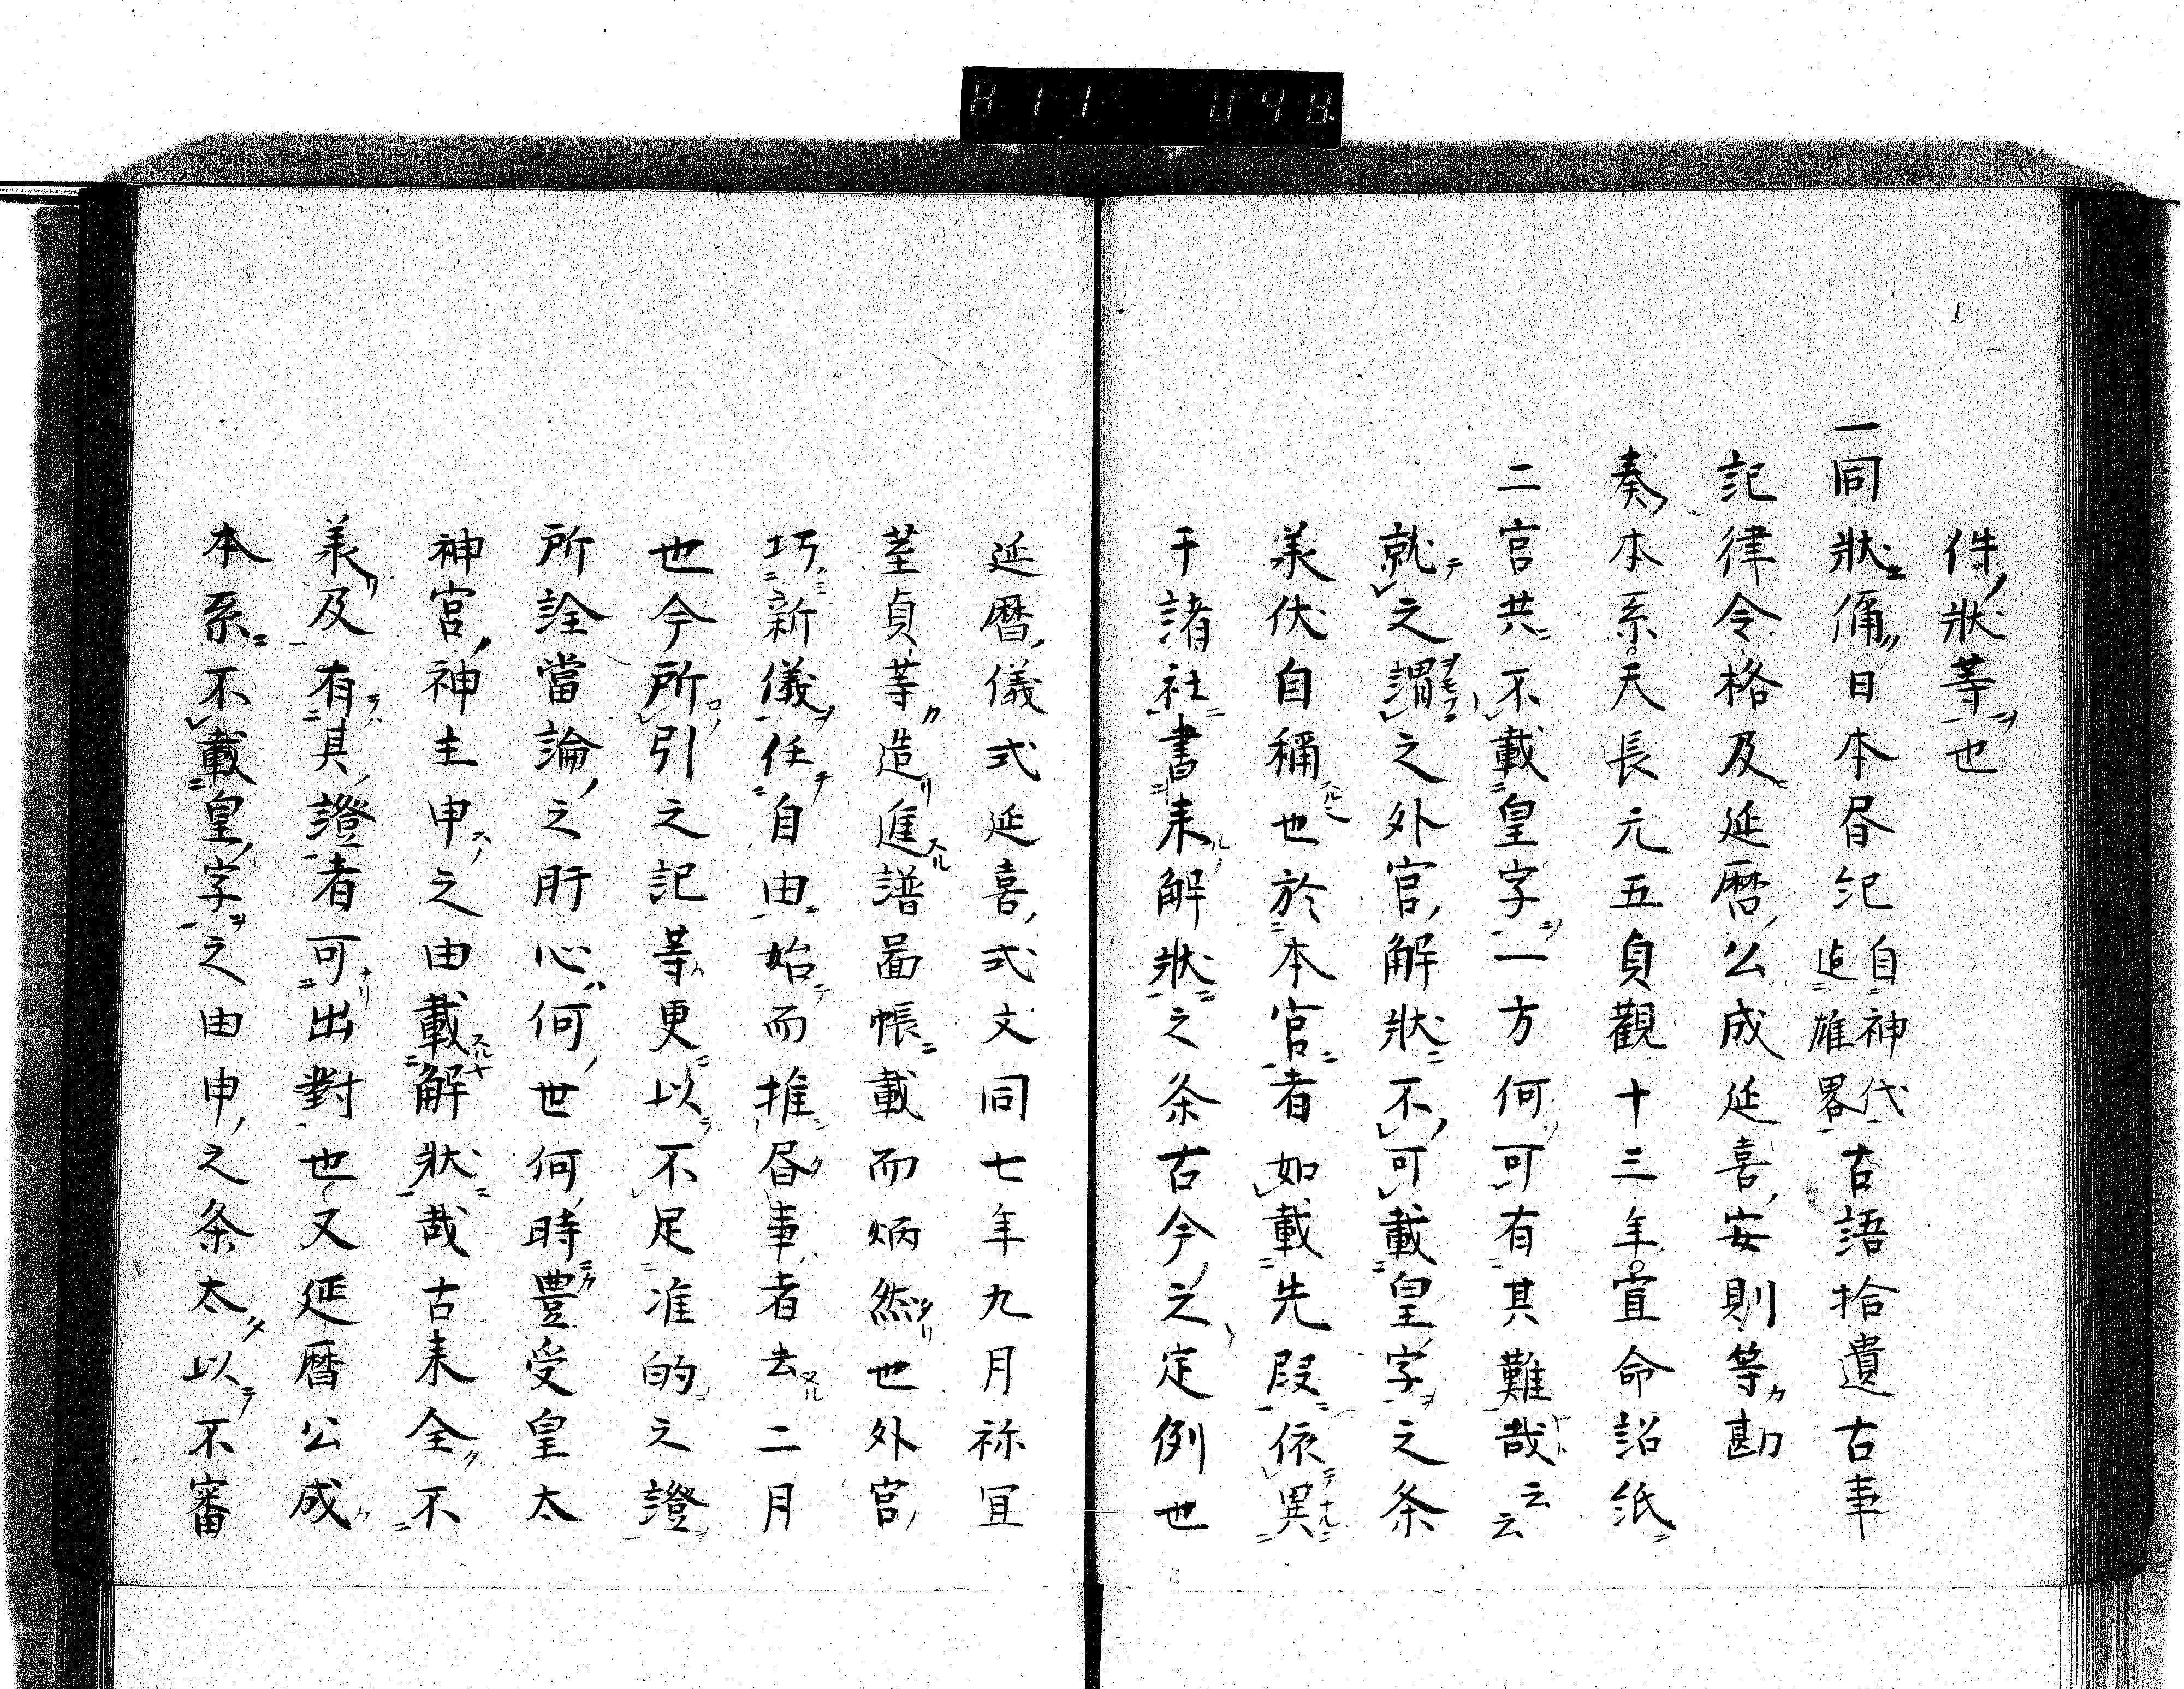 件狀等也
一同狀偁日本昬紀自神代迄雄畧古語拾遺古事
記律令格及延暦公成延喜安則等勘
奏本系天長元五貞觀十三年宣命詔紙
二宮共不載皇字一方何可有其難哉云云
就之謂之外宮解狀不可載皇字之条
美伏自稱也於本宮者如載先段依異
于諸社書来解狀之条古今之定例也
延暦儀式延喜式文同七年九月祢冝
莖貞等造進譜啚帳載而炳然也外宮
巧新儀任自由始而推昬事者去二月
也今所引之記等更以不足准的之證
所詮當論之肝心何世何時豊受皇太
神宮神主申之由載解狀哉古来全不
美及有具證者可出對也又延暦公成
本系不載皇字之由申之条太以不審